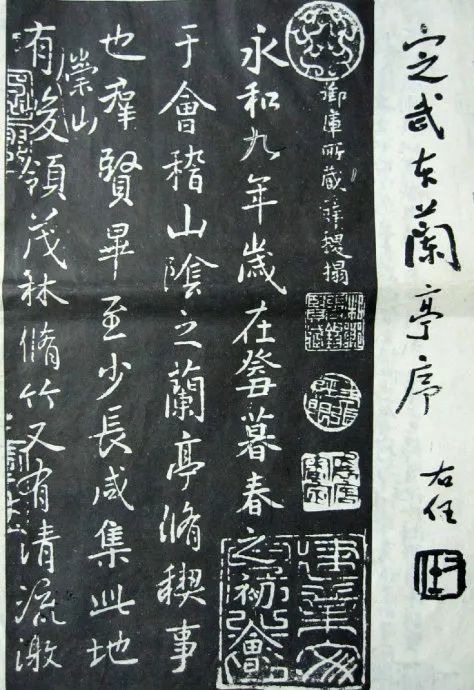 定武本蘭亭序
右任
御庫所藏薛稷搨
永和九年歲在癸丑暮春之初會
于會稽山陰之蘭亭脩稧事
也羣賢畢至少長咸集此地
有崇山峻領茂林脩竹又有清流激